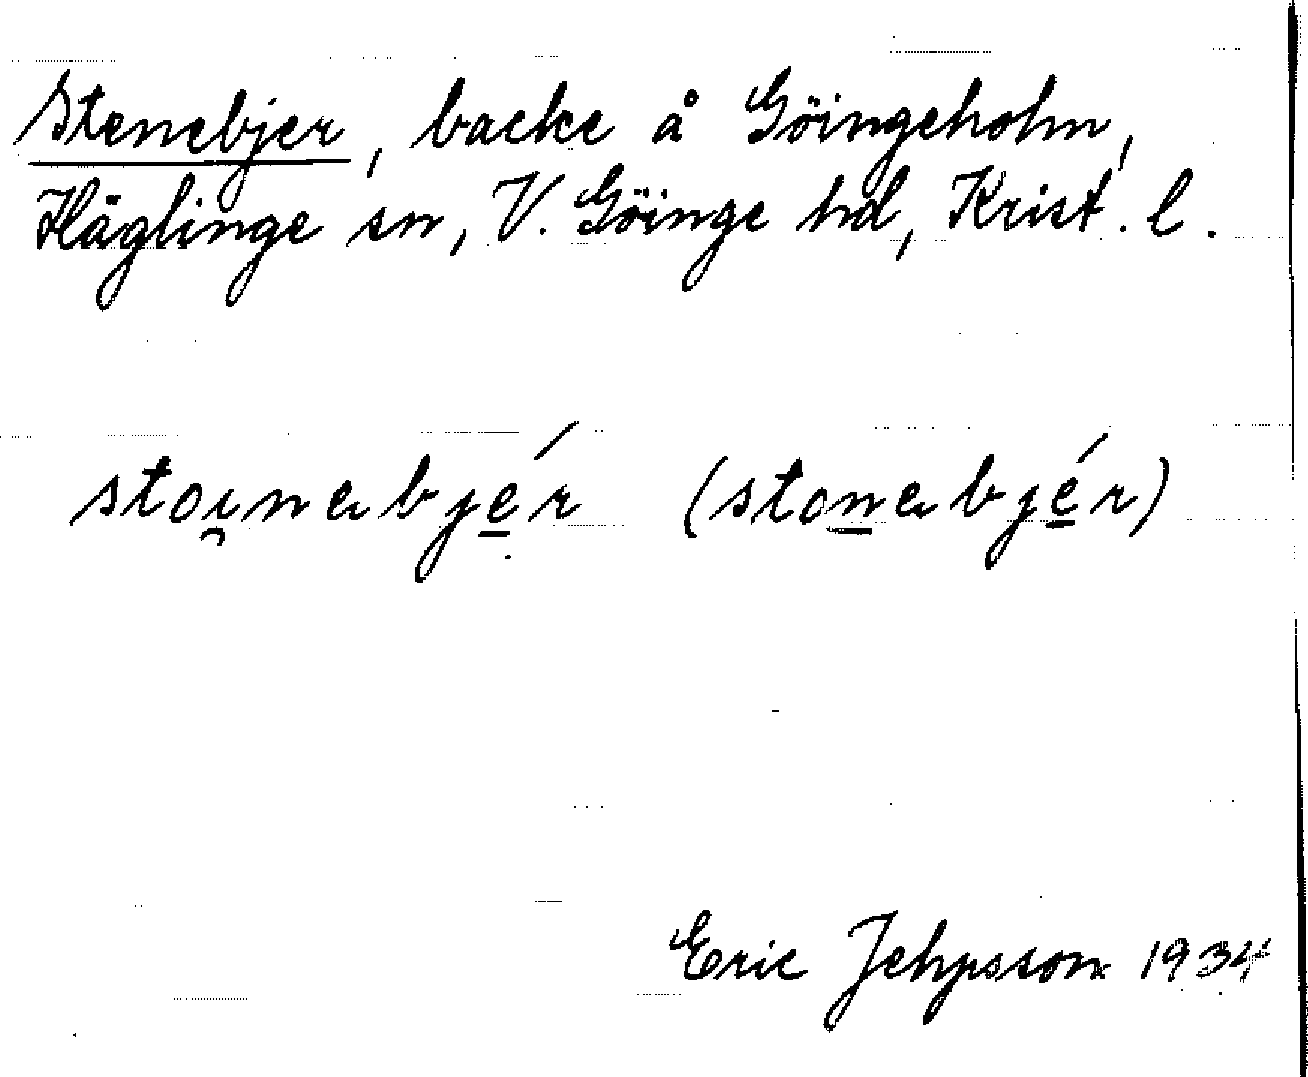 Stenebjer, backe å Göingeholm,
Häglinge sn, V. Göinge hd, Krist. l.
stoi̯nabjér (stonabjér)
Eric Jehpsson 1934